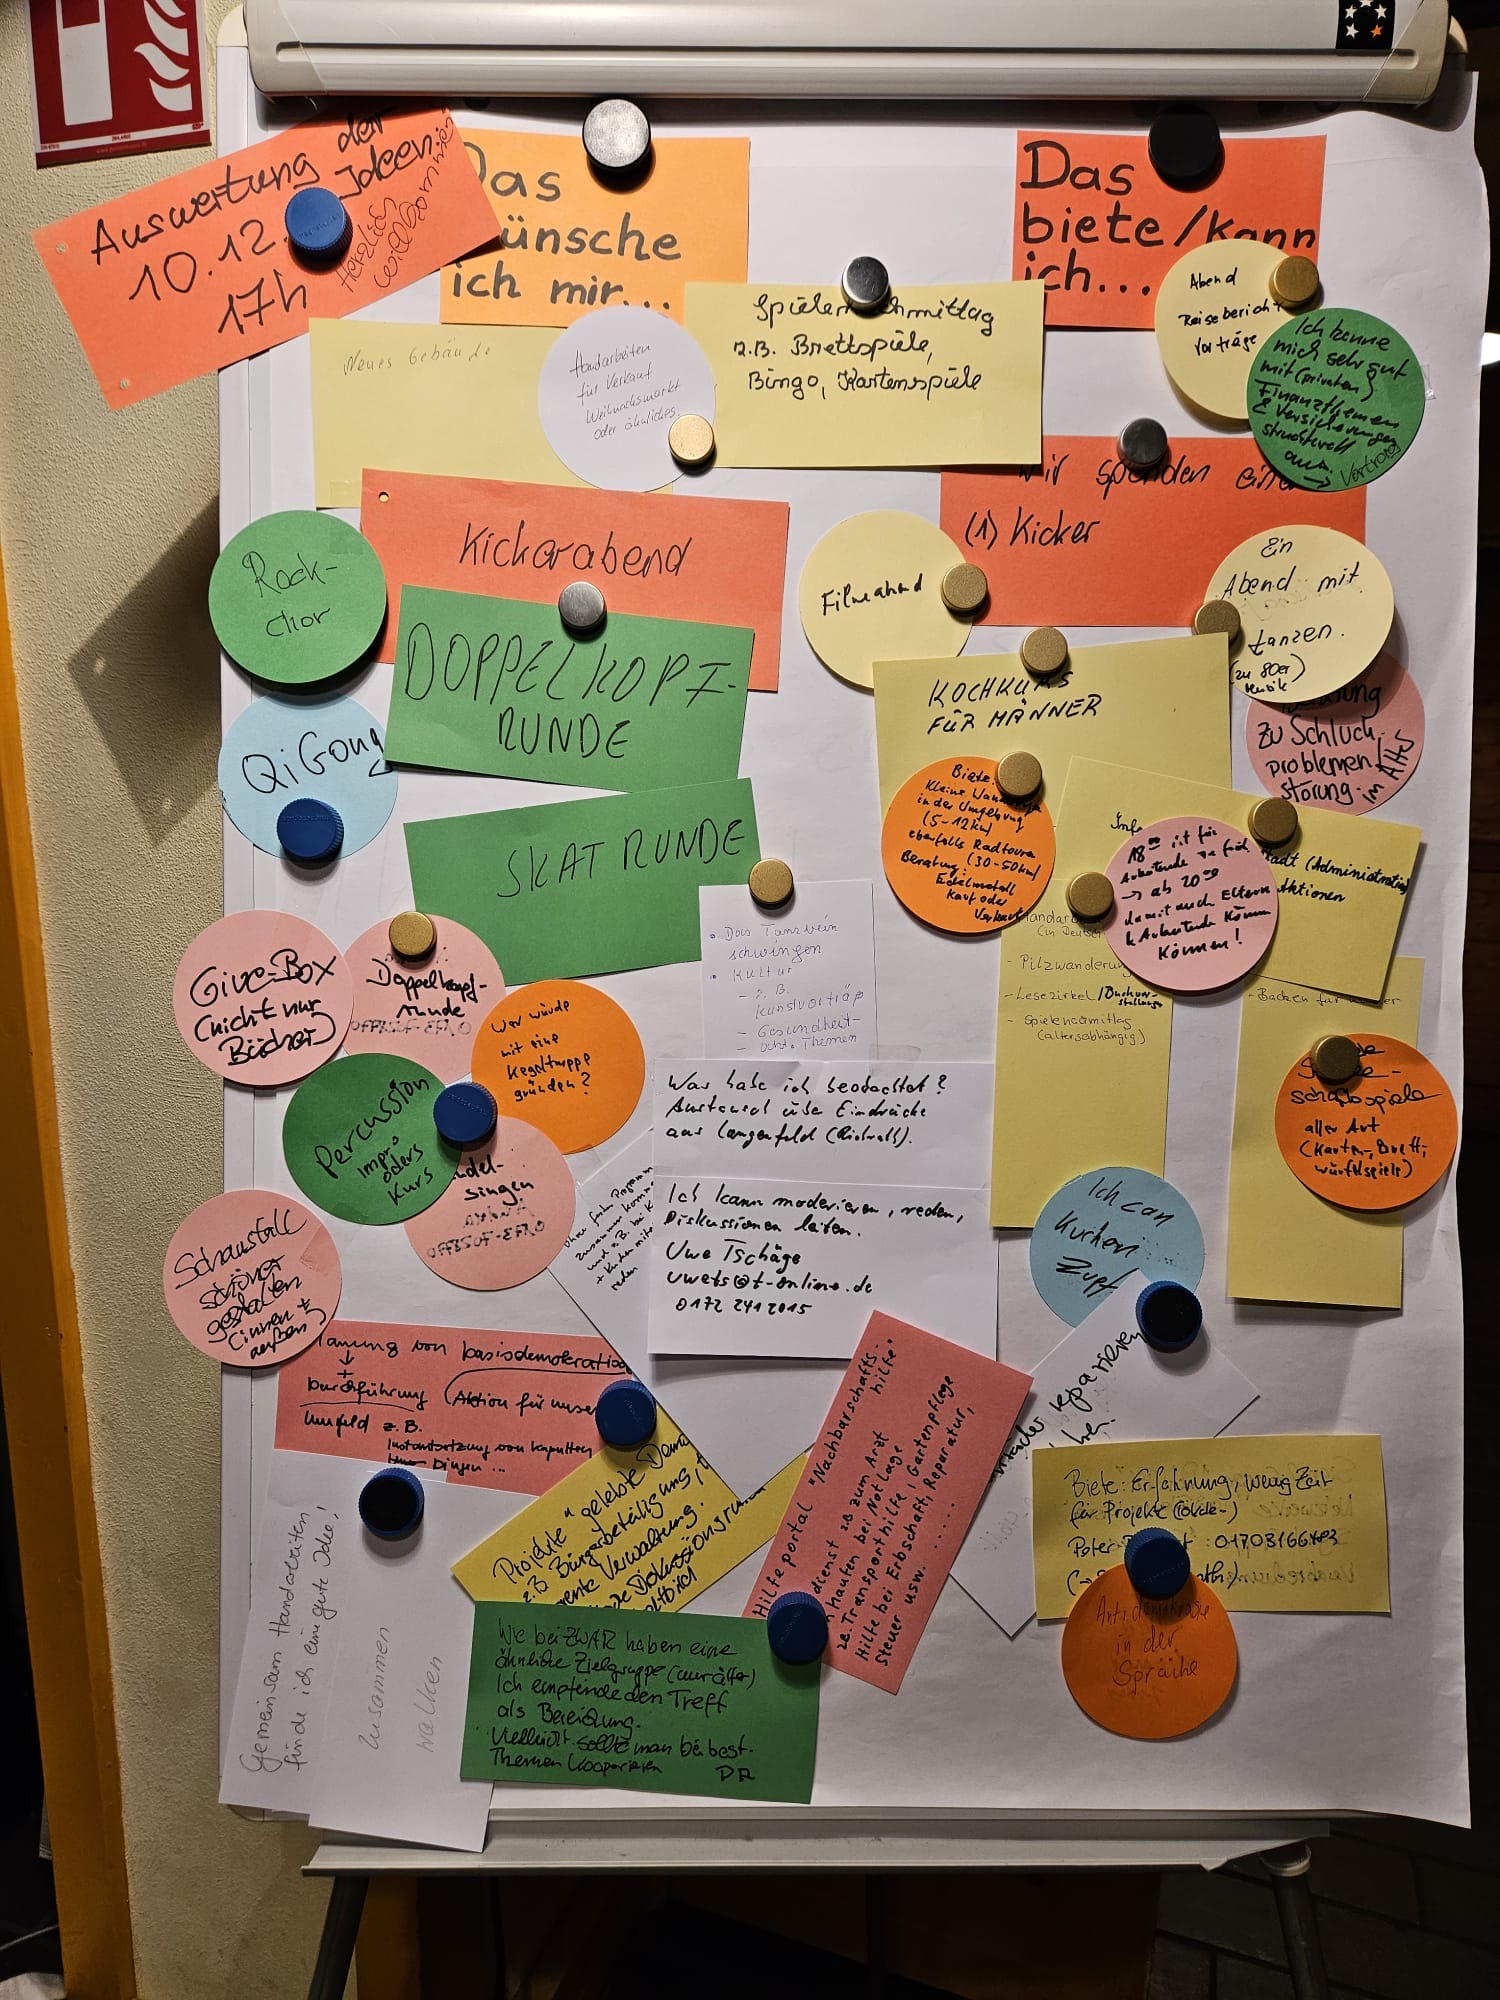 Auswertung der
Ideen
10.12.
17h
Herzlich
willkommen
Das
wünsche
ich mir...
Das
biete/kann
ich...
Neues Gebäude
Handarbeiten
für Verkauf
Weihnachsmarkt
oder ähnliches.
Spielenachmittag
z.B. Brettspiele,
Bingo, Kartenspiele
Abend
Reisebericht
Vorträge
Ich kenne
mich sehr gut
mit (privaten)
Finanzthemen
& Versicherungen
strukturell
aus.
→ Vortrag
Wir spenden einen
(1) Kicker
Kickerabend
Rock-
chor
DOPPELKOPF-
RUNDE
QiGong
SKAT RUNDE
Filmabend
Ein
Abend mit
tanzen.
(zu 80er)
Musik
KOCHKURS
FÜR MÄNNER
zu Schluck
problemen/
störung.
im Alter
Biete:
Kleine Wanderungen
in der Umgebung
(5-12km)
ebenfalls Radtouren
(30-50km)
Beratung:
Edelmetall
Kauf oder
Verkauf
18 00 ist für
Arbeitende zu früh
→ ab 20 00
damit auch Eltern
& Arbeitende können
können!
Stadt (Administration)
Aktionen
(in Deutsch
- Pilzwanderung
- Lesezirkel/Buchvor-
stellungen
- Spielenachmittag
(altersabhängig)
- Backen für Kinder
Give-Box
(nicht nur
Bücher)
Doppelkopf-
runde
Wer würde
mit eine
Kegeltruppe
gründen?
• Das Tanzbein
schwingen
• Kultur
- z.B.
Kunstvorträge
- Gesundheit-
- Themen
Percussion
Impro
oders
Kurs
singen
Was habe ich beobachtet?
Austausch über Eindrücke
aus Langenfeld (Richrath).
Ich kann moderieren, reden,
Diskussionen leiten.
Uwe Tschäge
uwets@t-online.de
0172 2412015
ohne festes Programm
zusammen kommen
und z.B. bei K
+ Kuchen mite
reden
schaftsspiele
aller Art
(Karten-, Brett-,
Würfelspiele)
Ich can
Kuchen
Zupf
Schaustall
schöner
gestalten
(innen +
außen)
Planung von basisdemokratisch
↓
+
Durchführung (Aktion für unser
Umfeld z.B.
Instandsetzung von kaputten
Dingen ...
Projekte "gelebte Demo
z.B. Bürgerbeteiligung,
Verwaltung.
Diskussionsrunden
Hilfeportal "Nachbarschafts-
hilfe".
dienst z.B. zum Arzt
hauten bei Notlage
z.B. Transporthilfe, Gartenpflege
Hilfe bei Erbschaft, Reparatur,
Steuer usw. ......
reparieren
Biete: Erfahrung, wenig Zeit
für Projekte
Peter
Antidemokratie
in der
Sprache
Gemeinsam Handarbeiten
finde ich eine gute Idee!
zusammen
walken
Wir bei ZWAR haben eine
ähnliche Zielgruppe (nur älter)
Ich empfinde den Treff
als Bereicherung.
Vielleicht sollte man bei best.
Themen kooperieren